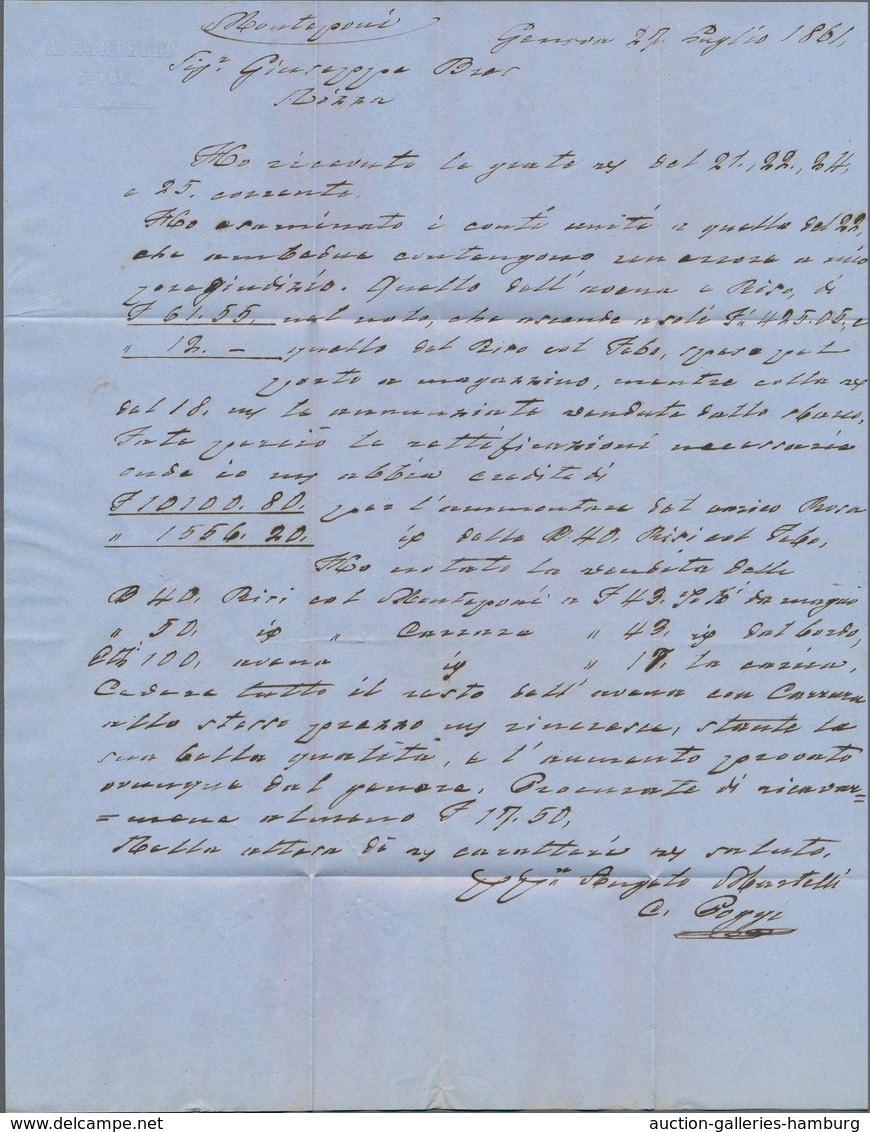 Monteponi
Genova 27. Luglio 1861.
A. MARTELLI
GENOVA
Sigr. Giuseppe Bres
Nizza
Ho ricevuto le grate vs del 21., 22., 24,
e 25. corrente.
Ho esaminato i conti uniti a quella del 22,
che ambedue contengono un errore a mio
pregiudizio. Quello dell'avena e Riso, di
F 61.55. nel nolo, che ascende a soli F. 425.05, e
" 12. – quello del Riso col Febo, spese pel
porto a magazzino, mentre colla vs
del 18. me le annunziate vendute dallo sbarco.
Fate perciò le rettificazioni necessarie
onde io ne abbia credito di
F 10100.80. per l'ammontare del carico Rosa
" 1556.20. id delle B 40. Risi col Febo,
Ho notato la vendita delle
B 40. Risi col Monteponi a F 43. da magno
" 50. id " Carrara " 43. id dal bordo,
100. avena id " 17. la carica,
Cedere tutto il resto dell'avena con Carrara
allo stesso prezzo mi rincresce, stante la
sua bella qualità, e l'aumento provato
ovunque dal genere. Procurate di ricavar=
=mene almeno F 17.50.
Nella attesa di vs caratteri vs saluto.
Angelo Martelli
C. Poggi
www.delcampe.net
auction-galleries-hamburg